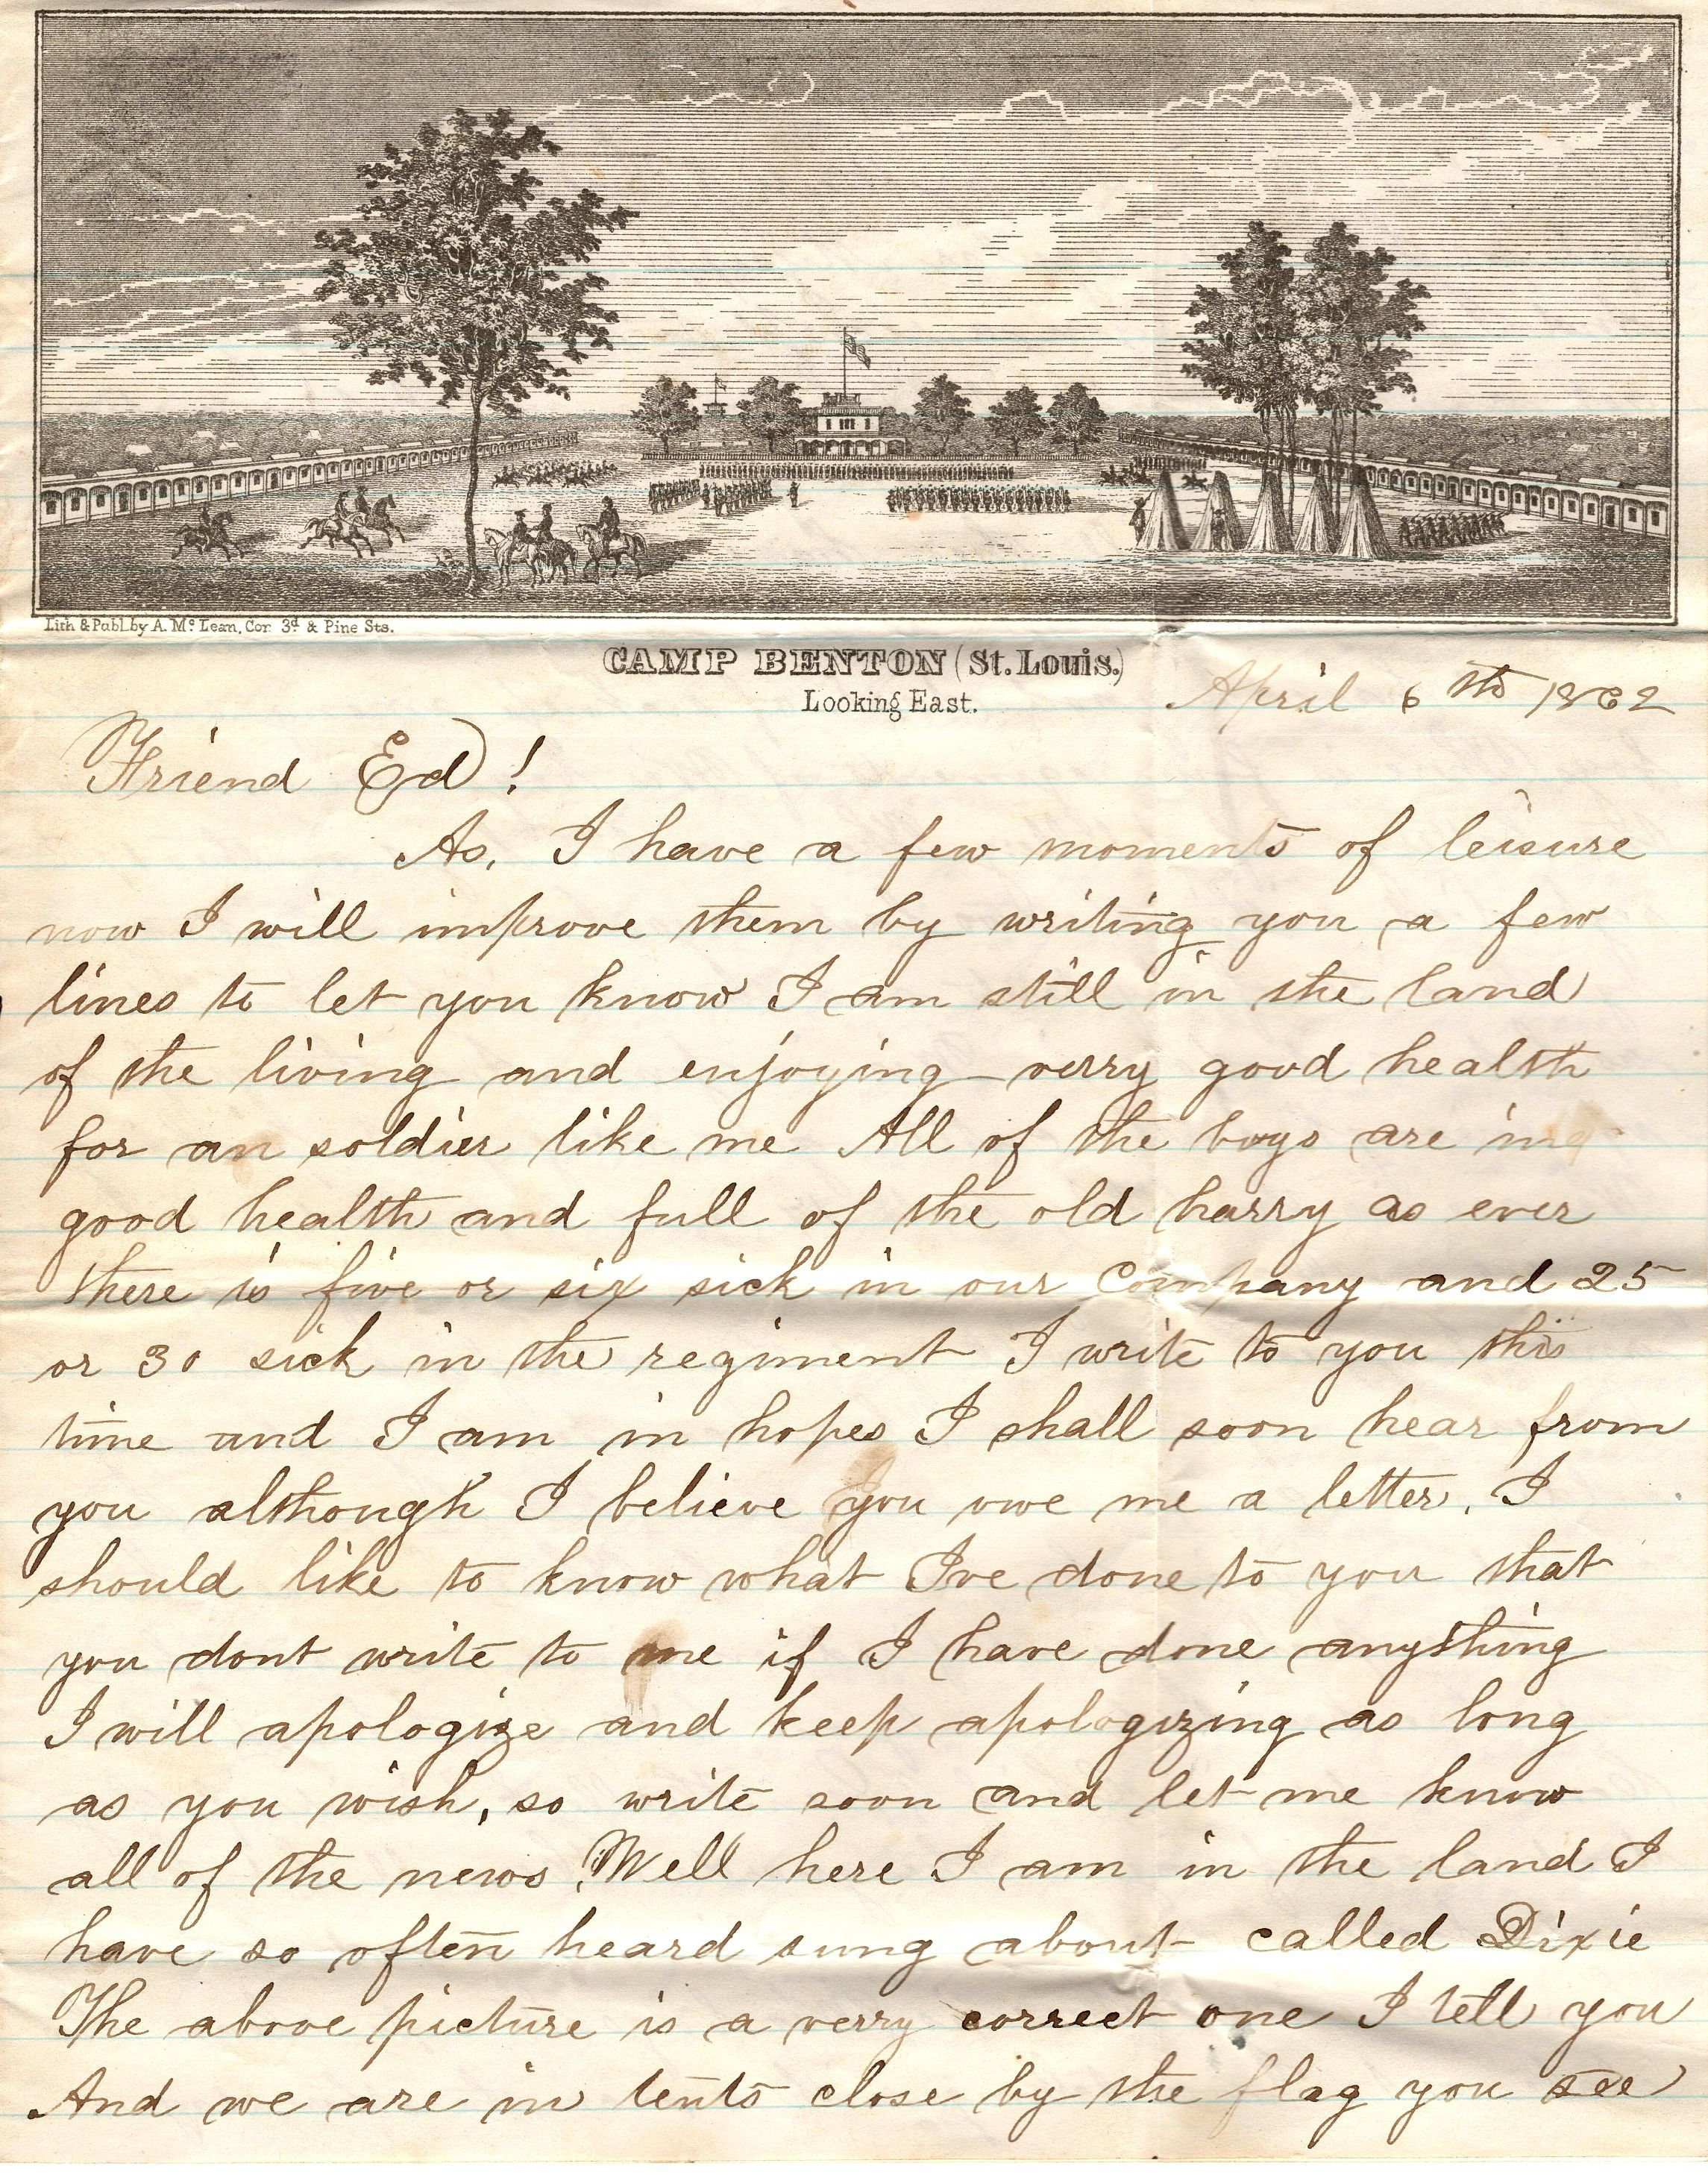 Lith & Publ. by A. Mc Lean, Cor. 3d & Pine Sts.
CAMP BENTON (St. Louis.)
Looking East.
April 6th 1862
Friend Ed!
As, I have a few moments of leisure
now I will improve them by writing you a few
lines to let you know I am still in the land
of the living and enjoying verry good health
for an soldier like me All of the boys are in
good health and full of the old harry as ever
there is five or six sick in our Company and 25
or 30 sick in the regiment I write to you this
time and I am in hopes I shall soon hear from
you although I believe you owe me a letter. I
should like to know what Ive done to you that
you dont write to me if I have done anything
I will apologize and keep apologizing as long
as you wish, so write soon and let me know
all of the news. Well here I am in the land I
have so often heard sung about called Dixie
The above picture is a verry correct one I tell you
And we are in tents close by the flag you see